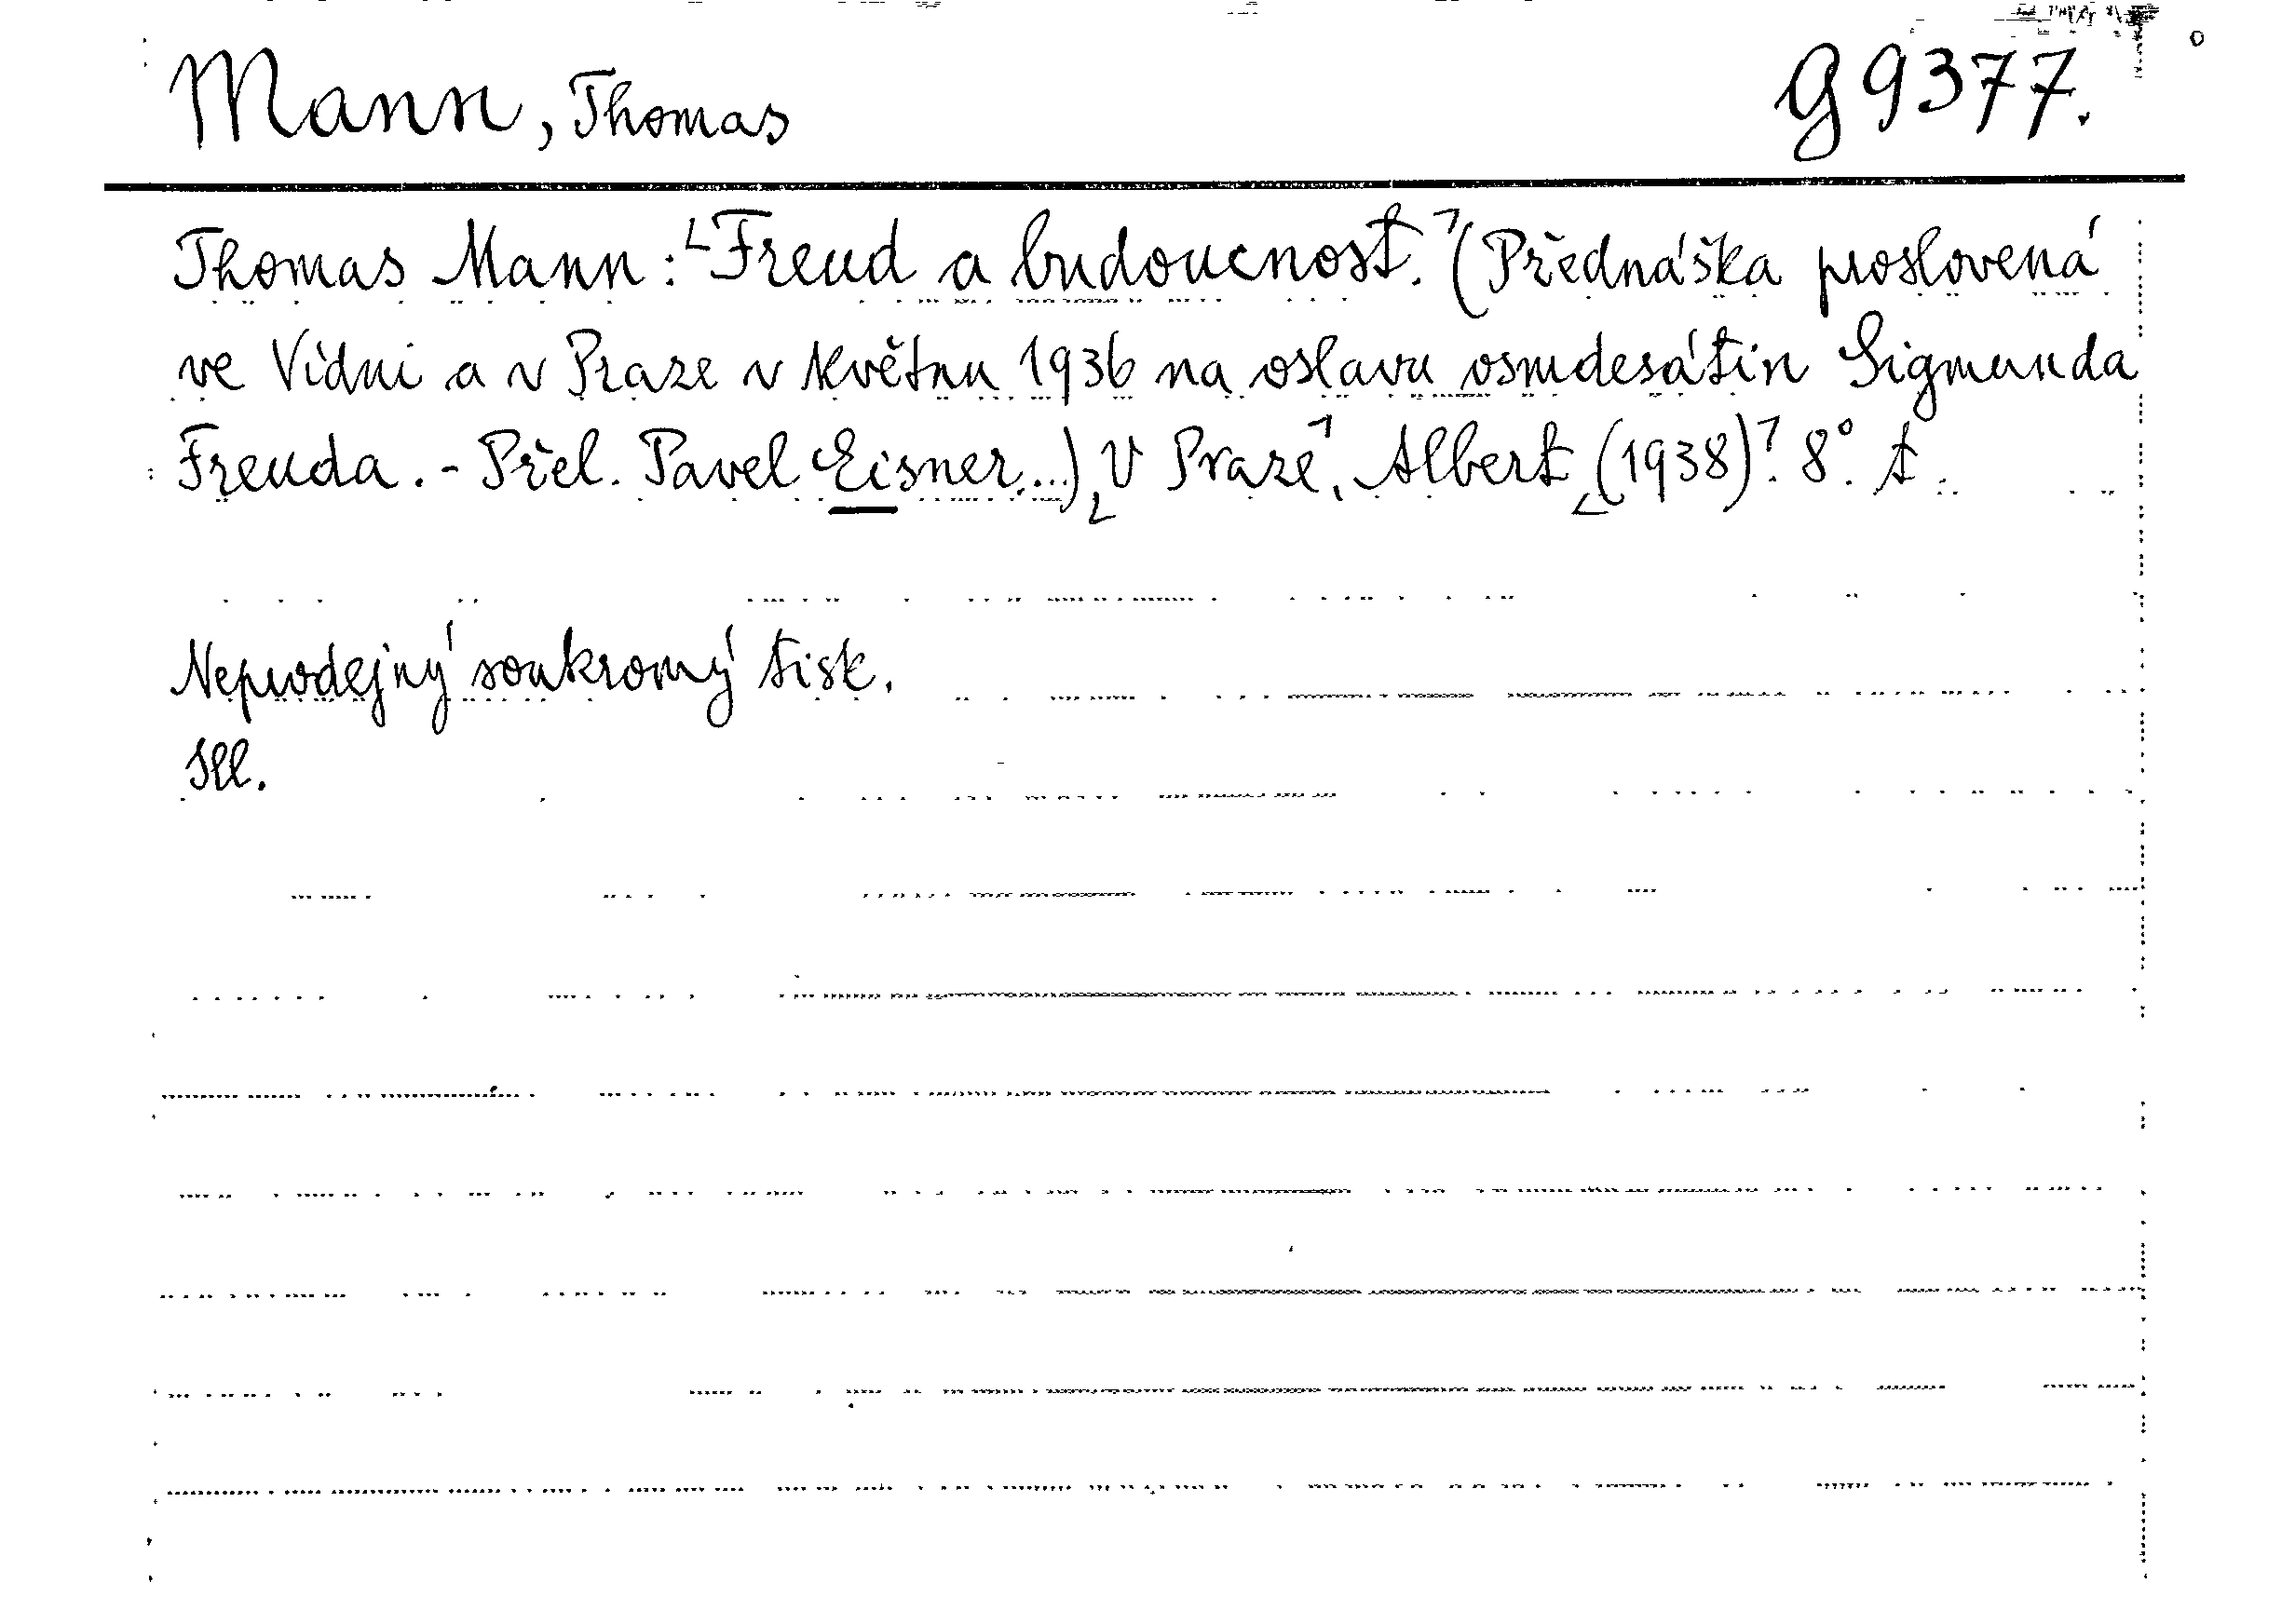 Mann, Thomas G 9377.
Thomas Mann: Freud a budoucnost. (Přednáška proslovená
ve Vídni a v Praze v květnu 1936 na oslavu osmdesátin Sigmunda
Freuda. - Přel. Pavel Eisner...) V Praze, Albert (1938). 8°. t.
Neprodejný soukromý tisk.
Ill.